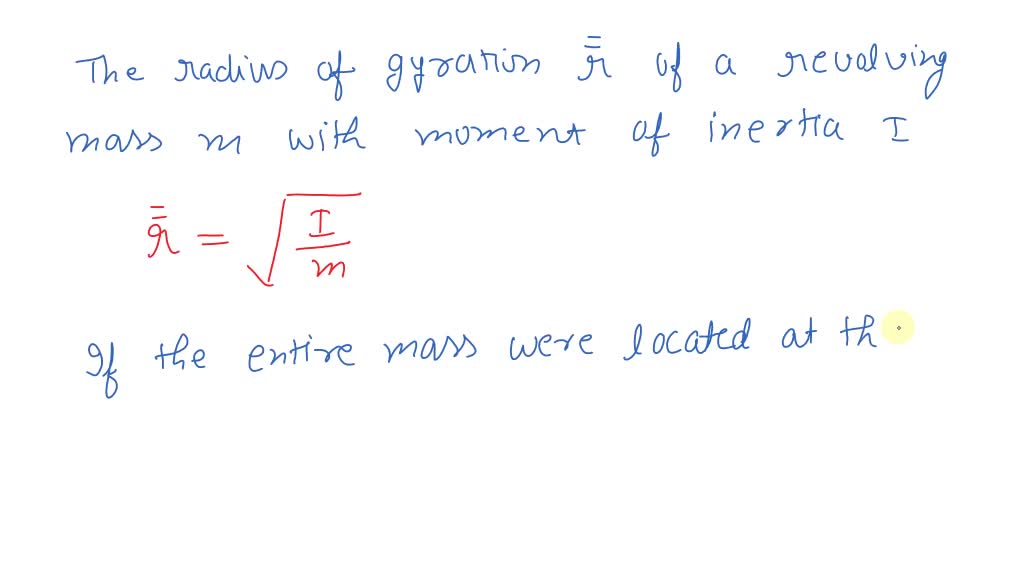 The radius of gyration r̿ of a revolving
mass m with moment of inertia I
r̿ = √(I/m)
If the entire mass were located at th